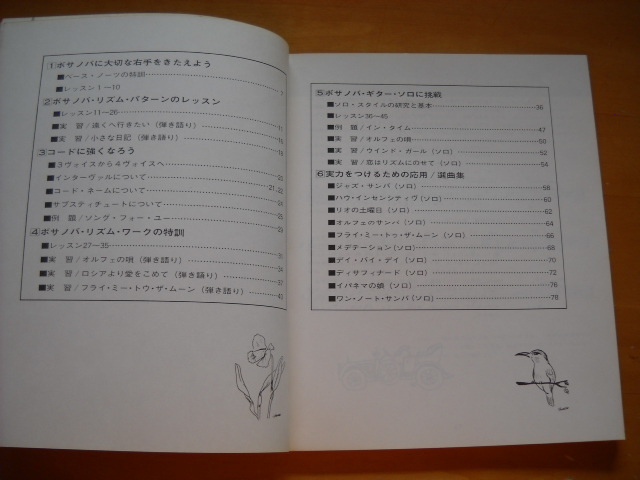 ①ボサノバに大切な右手をきたえよう
■ベース・ノーツの特訓
■レッスン1〜10 7
②ボサノバ・リズム・パターンのレッスン
■レッスン11〜26 11
■実 習/遠くへ行きたい(弾き語り)
■実 習/小さな日記(弾き語り)
③コードに強くなろう
■3ヴォイスから4ヴォイスへ
■インターヴァルについて
■コード・ネームについて
■サブスティチュートについて
■例 題/ソング・フォー・ユー
④ボサノバ・リズム・ワークの特訓
■レッスン27〜35 31
■実 習/オルフェの唄(弾き語り) 34
■実 習/ロシアより愛をこめて(弾き語り) 37
■実 習/フライ・ミー・トゥ・ザ・ムーン(弾き語り) 40
⑤ボサノバ・ギター・ソロに挑戦
■ソロ・スタイルの研究と基本 36
■レッスン36〜45
■例 題/イン・タイム 47
■実 習/オルフェの唄 50
■実 習/ウインド・ガール(ソロ) 52
■実 習/恋はリズムにのせて(ソロ) 54
⑥実力をつけるための応用/選曲集
■ジャズ・サンバ(ソロ) 58
■ハウ・インセンシティヴ(ソロ) 60
■リオの土曜日(ソロ) 62
■オルフェのサンバ(ソロ) 64
■フライ・ミー・トゥ・ザ・ムーン(ソロ) 66
■メデテーション(ソロ) 68
■デイ・バイ・デイ(ソロ) 70
■ディサフィナード(ソロ) 72
■イパネマの娘(ソロ) 76
■ワン・ノート・サンバ(ソロ) 78